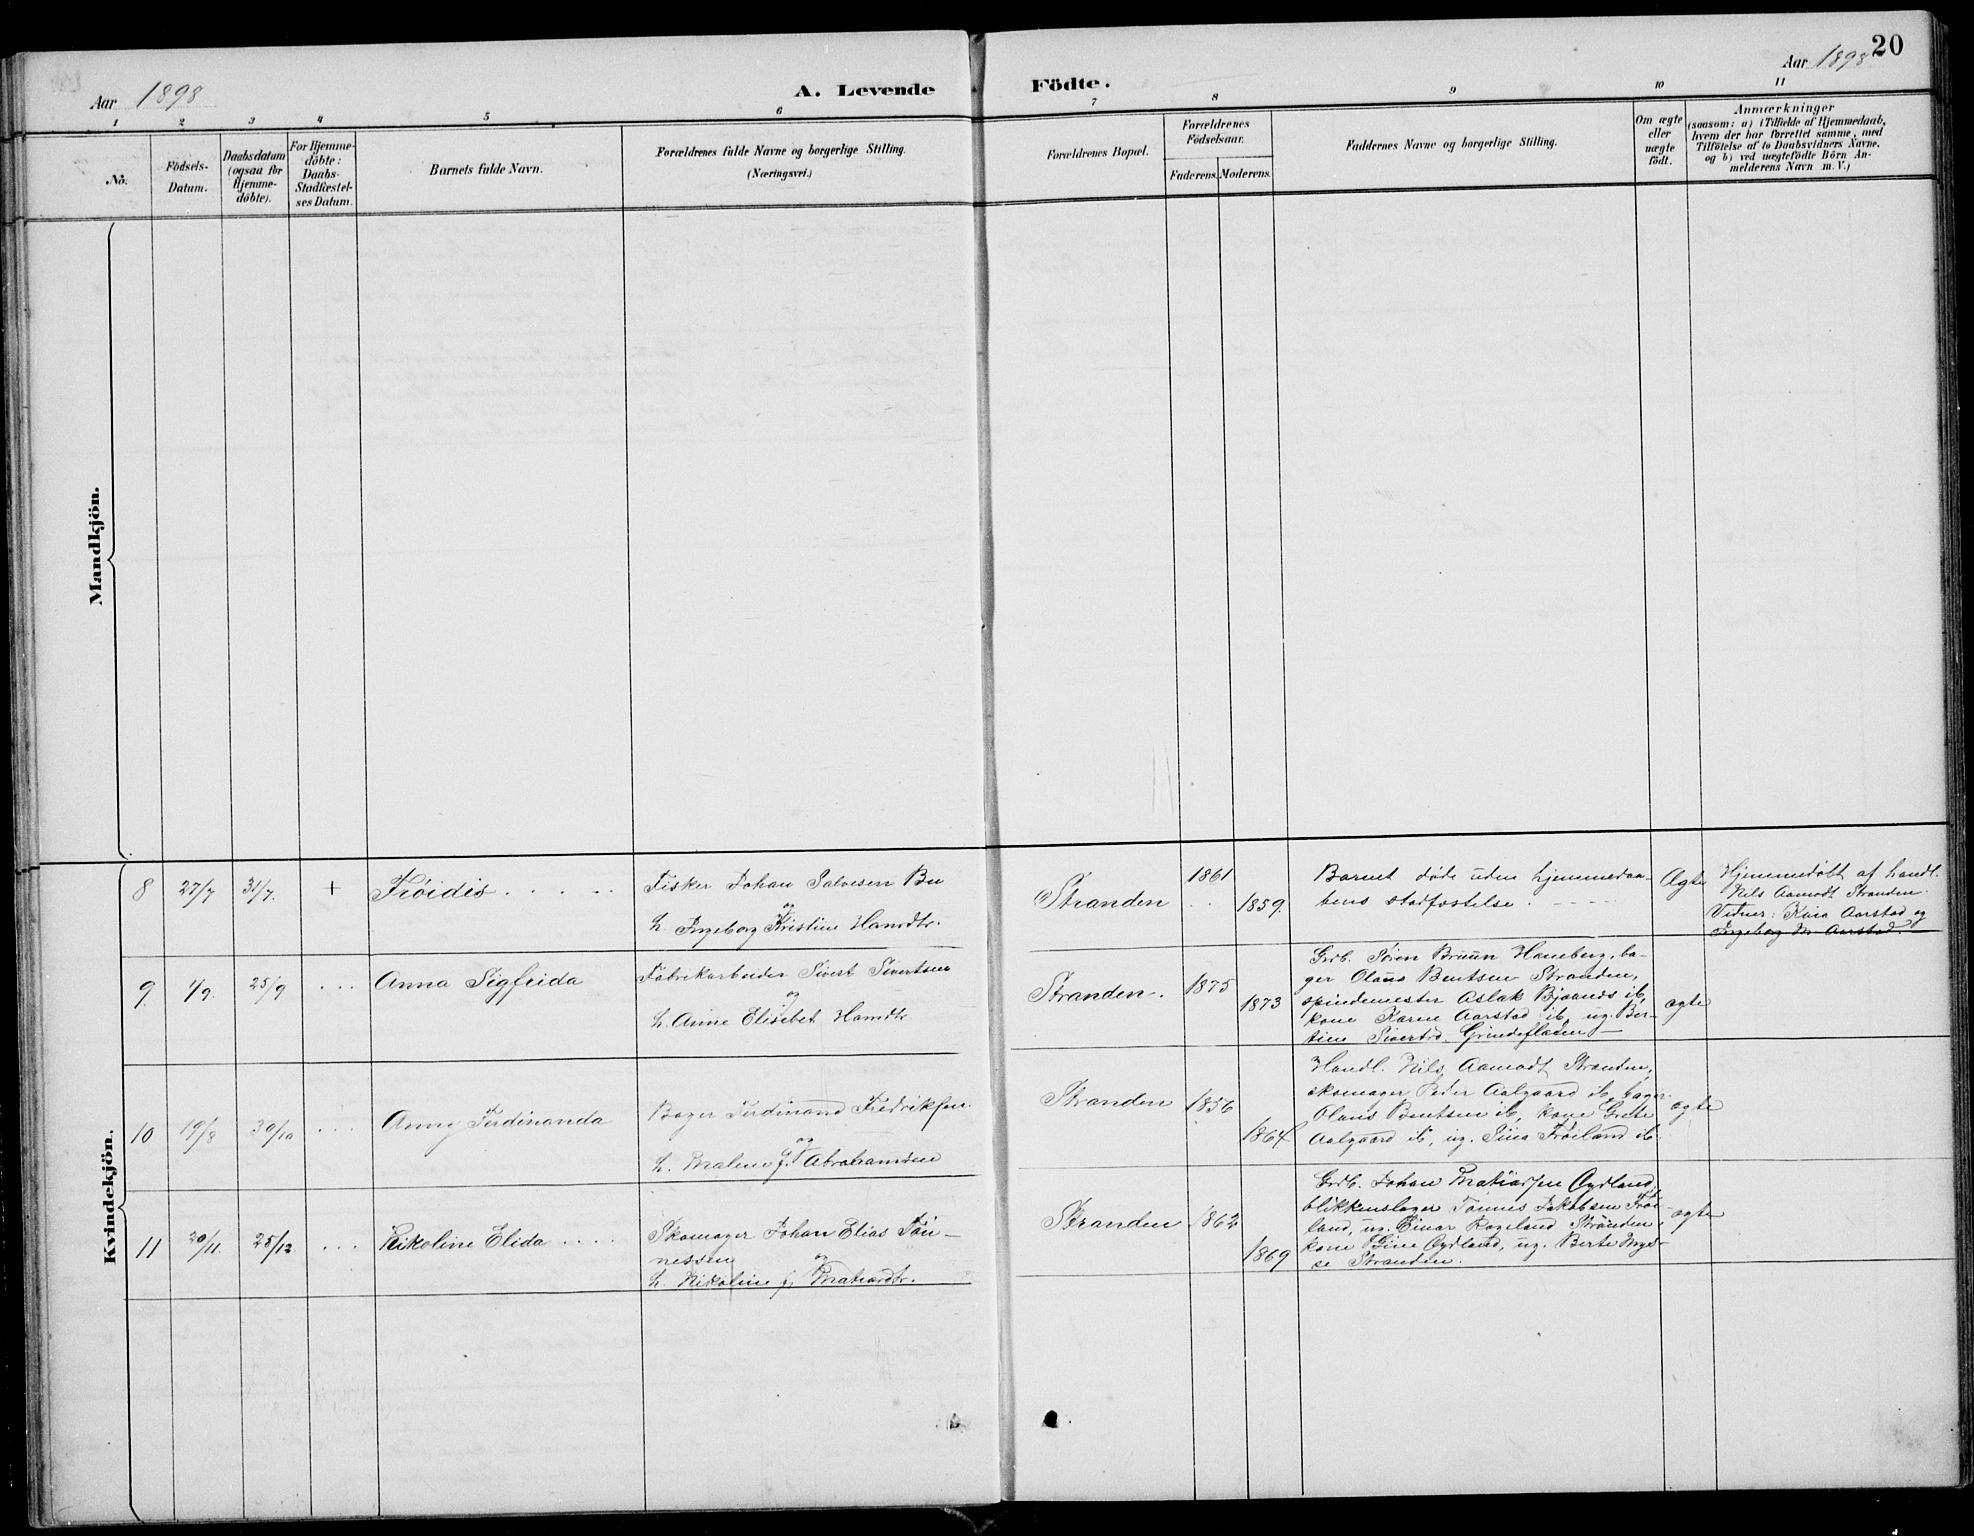 20
Aar 1898
A. Levende Födte.
Aar 1898
1 2 3 4 5 6 7 8 9 10 11
No.
Födsels-
Datum.
Daabsdatum
(ogsaa for
Hjemme-
döbte).
For Hjemme-
döbte:
Daabs-
Stadfæstel-
ses Datum.
Barnets fulde Navn.
Forældrenes fulde Navne og borgerlige Stilling.
(Næringsvei.)
Forældrenes Bopæl.
Forældrenes
Födselsaar.
Faderens. Moderens.
Faddernes Navne og borgerlige Stilling.
Om ægte
eller
uægte
födt.
Anmærkninger
(saasom: a) i Tilfælde af Hjemmedaab,
hvem der har forrettet samme, med
Tilföielse af to Daabsvidners Navne.
og b) ved uægtefödte Börn An-
melderens Navn m. V.)
Mandkjön.
Kvindekjön.
8 27/7 31/7. + Fröidis . . . . .
Fisker Johan Salvesen Bu
og
h. Ingeborg Kristine Hansdtr.
Stranden
1861
1859.
Barnet döde uden hjemmedaa-
bens stadfæstelse.
Ægte
Hjemmedöbt af handl.
Nils Aamodt Stranden.
Vidner: Kaia Aarstad og
Ingeborg M. Aarstad.
9 1/9. 25/9 . . . Anna Sigfrida
Fabrikarbeider Sivert Sivertsen
og
h. Anne Elisebet Hansdtr
Stranden.
1875
1873
Grb. Sören Bruun Haneberg, ba-
ger Olaus Bentsen Stranden,
spindemester Aslak Bjaanes ib,
kone Karen Aarstad ib, ug. Ber-
tine Sivertsd. Grindeflaten
ægte
10 19/8 30/10 . . . Anny Ferdinanda
Bager Ferdinand Fredriksen
og
h. Malene f. Abrahamsen
Stranden
1856
1864
Handl. Nils Aamodt Stranden,
skomager Peder Aalgaard ib, bager
Olaus Bentsen ib, kone Grete
Aalgaard ib, ug. Sina Fröiland ib.
ægte
11 20/11. 25/12 . . . Nikoline Elida . . . .
Skomager Johan Elias Tön-
nessen
og
h. Nikoline f. Matiasdtr.
Stranden
1862
1869
Grb. Johan Matiassen Øydland,
blikkenslager Tönnes Jakobsen Fröi-
land, ug. Einar Rageland Stranden,
kone Gine Øydland, ug. Berte
Stranden.
ægte